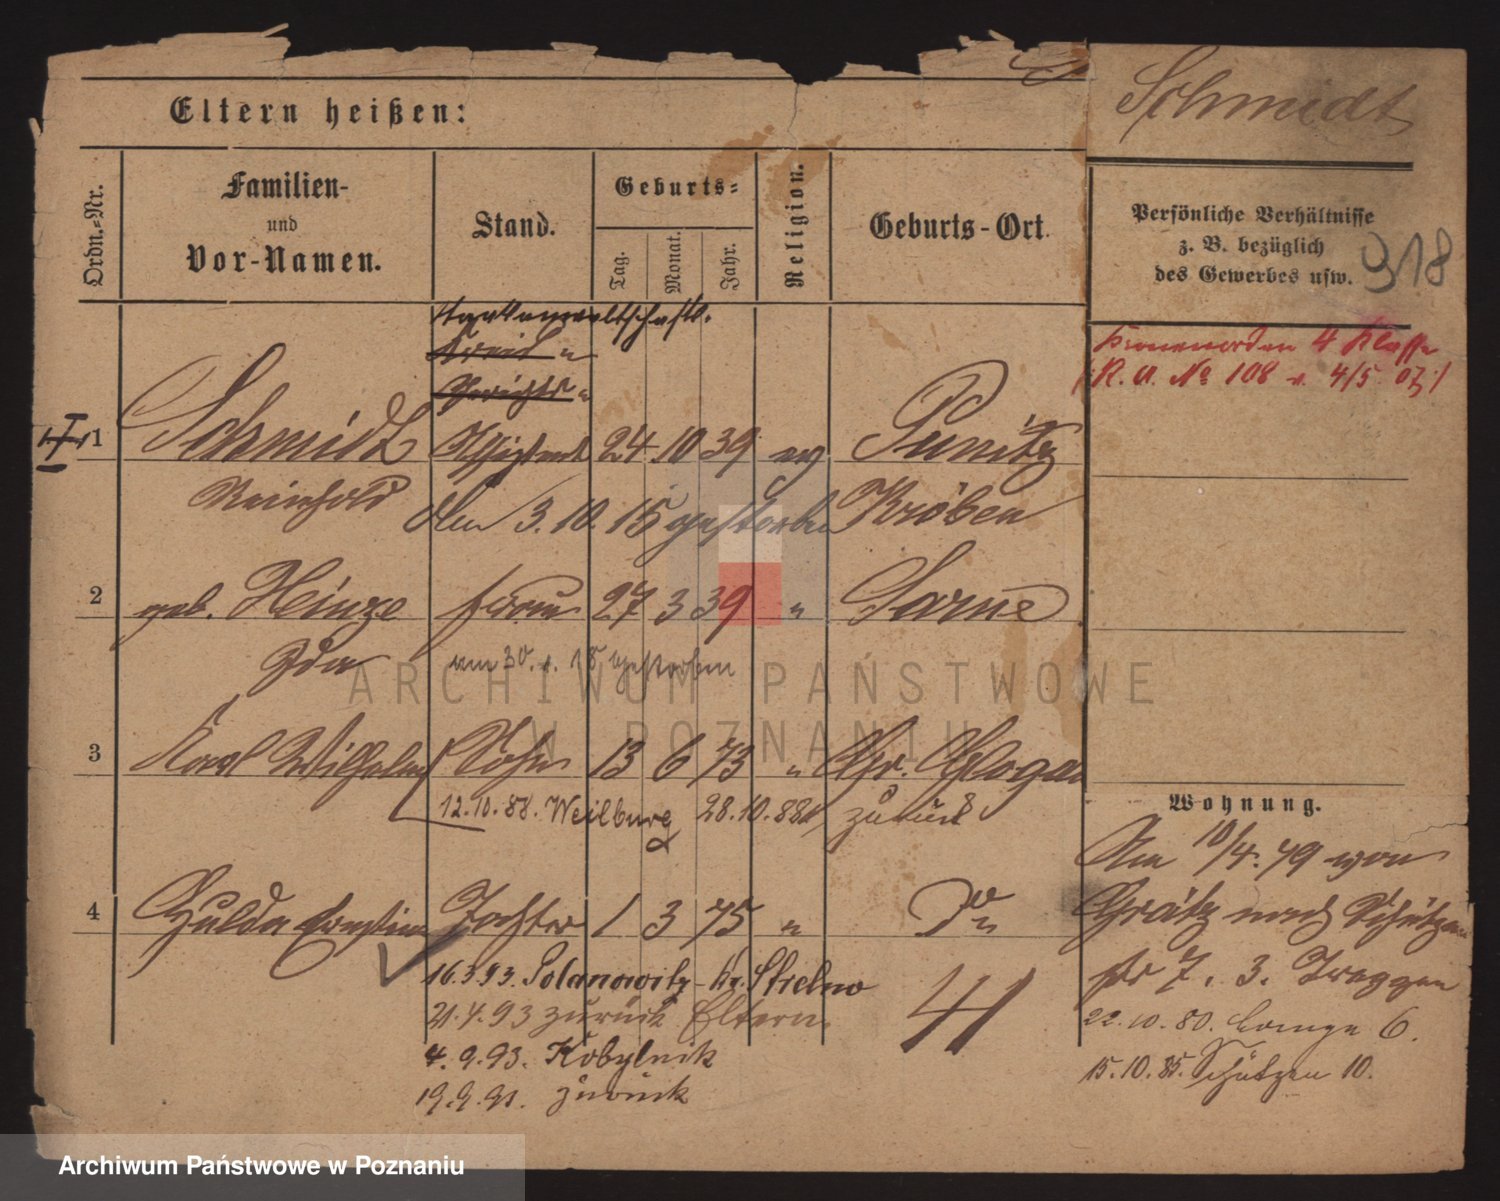 Schmidt
Eltern heißen:
Ordn.-Nr.
Familien-
und
Vor-Namen.
Stand.
Geburts-
Tag.
Monat.
Jahr.
Religion.
Geburts-Ort.
Persönliche Verhältnisse
z. B. bezüglich
des Gewerbes usw.
318
Staatsanwaltschaftl.
Kreis "
Gerichts "
Kronenorden 4 Klasse
(R. A. № 108 v. 4/5 07)
1 Schmidt Assistent 24 10 39 ev Punitz
Reinhold den 3. 10. 15 gestorben Kröben
2 geb. Hinze Frau 27 3 39 " Sarne
Ida am 30. 18 gestorben
3 Karl Wilhelm Sohn 13 6 73 " Gr. Glogau
12.10.88. Weilburg 28.10.88 zurück
Wohnung.
Am 10/4. 79 von
Grätz nach Schützen
str 7. 3. Treppen
22.10.80. Lange 6.
15.10.85. Schützen 10.
4 Hulda Ernstine Tochter 1 3 75 " Do
16.3.93. Polanowitz - Kr. Strelno
21.4.93 zurück Eltern.
4.9.93. Kobylnik
19.9.93. zurück
41
ARCHIWUM PAŃSTWOWE
W POZNANIU
Archiwum Państwowe w Poznaniu